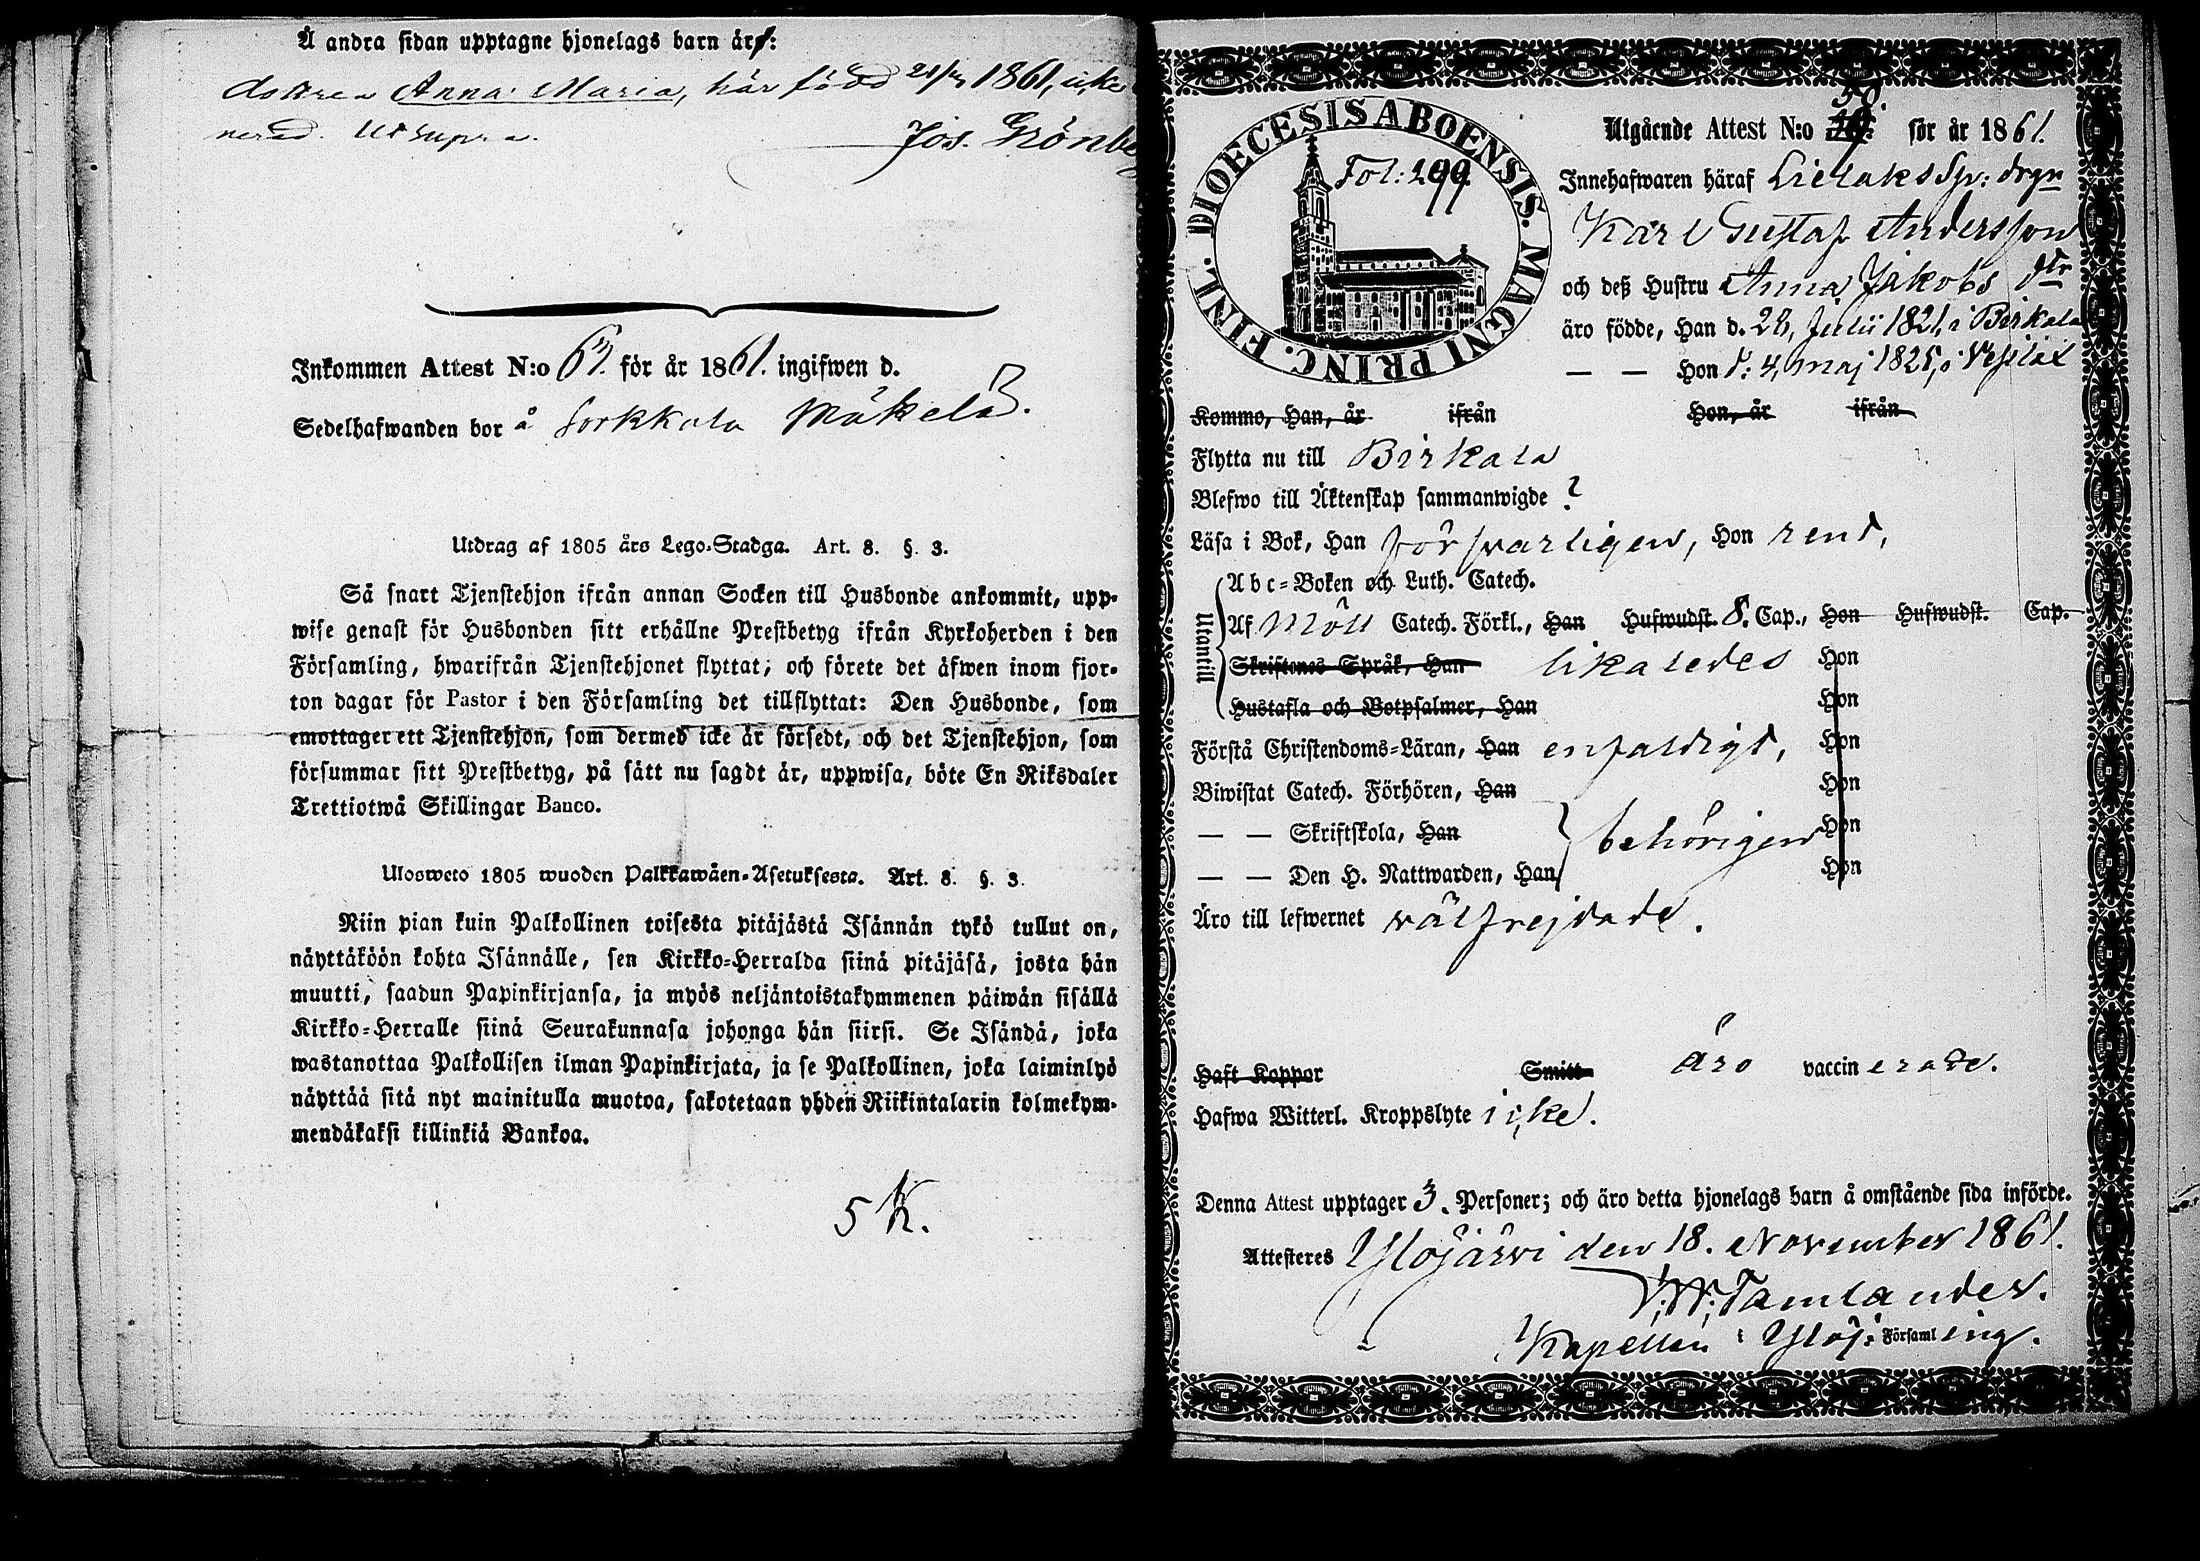 Å andra sidan upptagne hjonelags barn är:
dottren Anna Maria, här född 1861, icke
nerad. Ut supra.
Jos. Grönbe
Inkommen Attest N:o 67. för år 1861. ingifwen d.
Sedelhafwanden bor å Sorkkala Mäkelä.
Utdrag af 1805 års Lego-Stadga. Art. 8. §. 3.
Så snart Tjenstehjon ifrån annan Socken till Husbonde ankommit, upp-
wise genast för Husbonden sitt erhållne Prestbetyg ifrån Kyrkoherden i den
Församling, hwarifrån Tjenstehjonet flyttat; och förete det äfwen inom fjor-
ton dagar för Pastor i den Församling det tillflyttat: Den Husbonde, som
emottager ett Tjenstehjon, som dermed icke är försedt, och det Tjenstehjon, som
försummar sitt Prestbetyg, på sätt nu sagdt är, uppwisa, böte En Riksdaler
Trettiotwå Skillingar Banco.
Ulosweto 1805 wuoden Palkkawäen-Asetuksesta. Art. 8. §. 3.
Niin pian kuin Palkollinen toisesta pitäjästä Isännän tykö tullut on,
näyttäköön kohta Isännälle, sen Kirkko-Herralda siinä pitäjäsä, josta hän
muutti, saadun Papinkirjansa, ja myös neljäntoistakymmenen päiwän sisällä
Kirkko-Herralle siinä Seurakunnasa johonga hän siirsi. Se Isändä, joka
wastanottaa Palkollisen ilman Papinkirjata, ja se Palkollinen, joka laiminlyö
näyttää sitä nyt mainitulla muotoa, sakotetaan yhden Riikintalarin kolmekym-
mendäkaksi killinkiä Bankoa.
5 K.
FINL. DIOECESIS ABOENSIS. MAGNI PRINC.
Fol: 299
Utgående Attest N:o 50 för år 1861.
Innehafwaren häraf Lielaks Sp: drgn
Karl Gustaf Andersson
och deß Hustru Anna Jakobs dtr
äro födde, Han d. 28, Julii 1821, i Birkala
— — Hon d: 4, maj 1825, i Vesilax
Kommo, Han, år ifrån Hon, år ifrån
Flytta nu till Birkala
Blefwo till Äktenskap sammanwigde ?
Läsa i Bok, Han försvarligen, Hon rent,
Utantill
Abc-Boken och Luth. Catech.
Af Möll Catech. Förkl., Han Hufwudst. 8. Cap., Hon Hufwudst. Cap.
Skriftenes Språk, Han likaledes Hon
Hustafla och Botpsalmer, Han Hon
Förstå Christendoms-Läran, Han enfaldigt, Hon
Biwistat Catech. Förhören, Han Hon
— — Skriftskola, Han behörigen Hon
— — Den H. Nattwarden, Han Hon
Äro till lefwernet välfrejdade.
Haft Koppor Smitt äro vaccinerade.
Hafwa Witterl. Kroppslyte icke.
Denna Attest upptager 3. Personer; och äro detta hjonelags barn å omstående sida införde.
Attesteres Ylöjärvi den 18. November 1861.
Tamlander.
Kapellan i Ylöj: Församling.